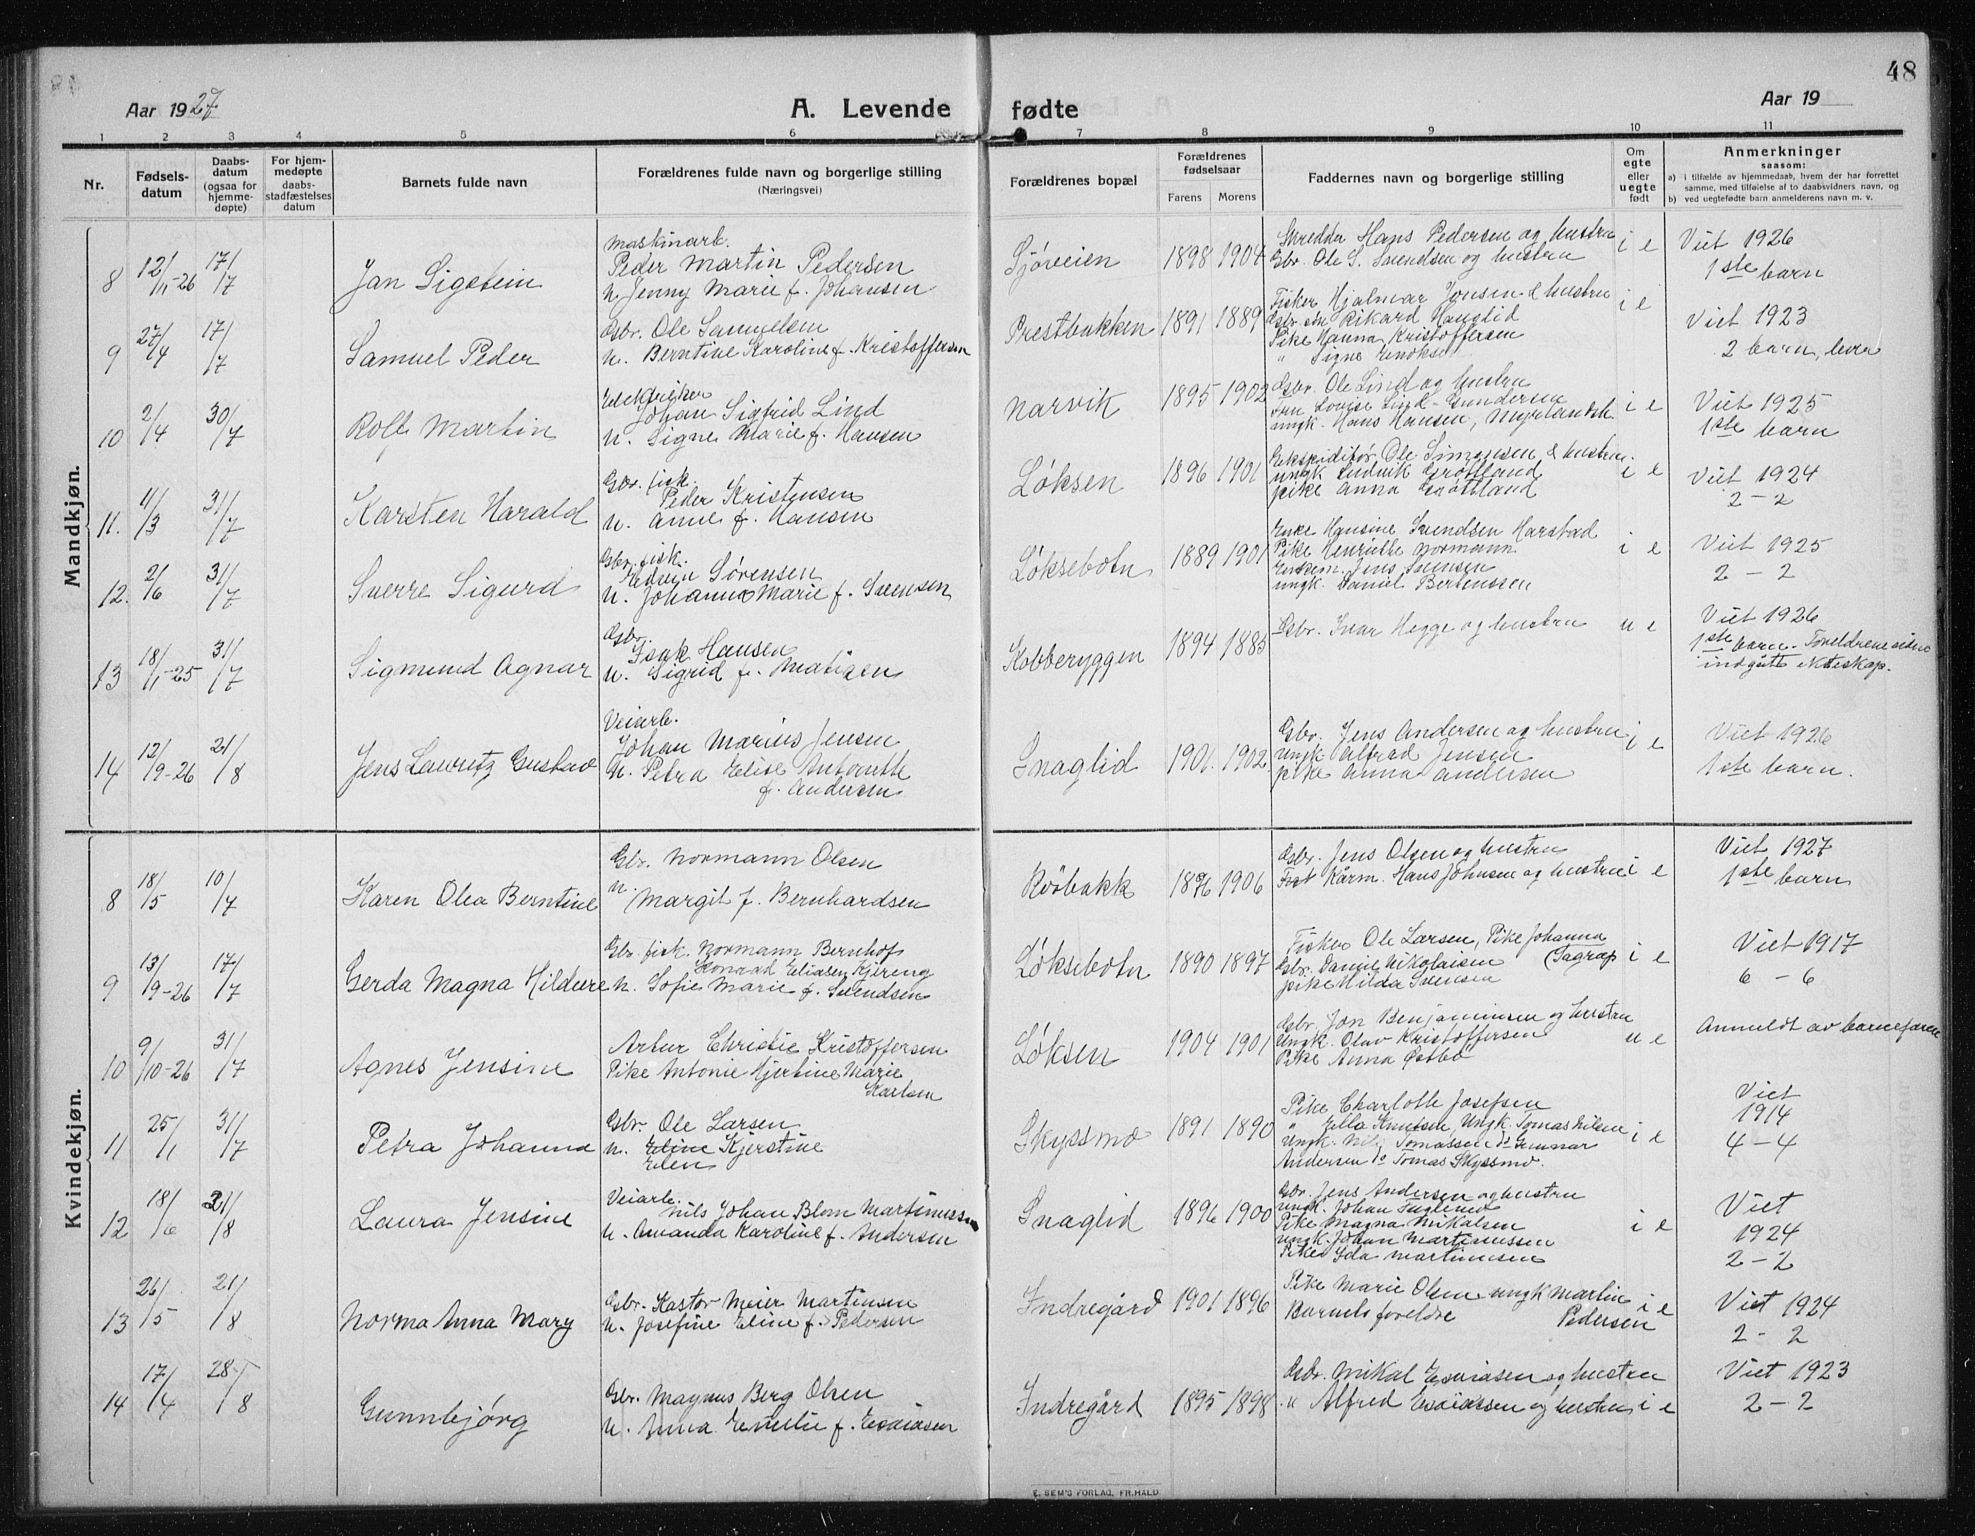 48
Aar 1927
A. Levende fødte
Aar 19
1 2 3 4 5 6 7 8 9 10 11
Nr.
Fødsels-datum
Daabs-datum (ogsaa for hjemme-døpte)
For hjem-medøpte daabs-stadfæstelses datum
Barnets fulde navn
Forældrenes fulde navn og borgerlige stilling
(Næringsvei)
Forældrenes bopæl
Forældrenes fødselsaar
Farens Morens
Faddernes navn og borgerlige stilling
Om egte eller uegte født
Anmerkninger
saasom:
a) i tilfælde av hjemmedaab, hvem der har forrettet
samme, med tilføielse af to daabsvidners navn, og
b) ved uegtefødte barn anmelderens navn m. v.
Mandkjøn.
8 12/11-26 17/7 Jan Sigstein
Maskinarb.
Peder Martin Pedersen
h. Jenny Marie f. Johansen
Sjøveien 1898 1904
Skredder Hans Pedersen og hustru
Gbr. Ole S. Svendsen og hustru
i e
Viet 1926
1ste barn
9 27/4 17/7 Samuel Peder
Gbr. Ole Samuelsen
h. Berntine Karoline f. Kristoffersen
Prestbakken 1891 1889
Fisker Hjalmar Jonsen & hustru
Rikard Hanglid
Pike Hanna Kristoffersen
" Signe
i e
Viet 1923
2 barn, lever
10 2/4 30/7 Rolf Martin
Elektriker
Johan Sigfrid Lind
h. Signe Marie f. Hansen
Narvik 1895 1902
Gbr. Ole Lind og hustru
Fru Lovise Lind-Gundersen
ungk. Hans Hansen, Myrlandsh.
i e
Viet 1925
1ste barn
11. 4/3 31/7 Karsten Harald
Gbr. fisk.
Peder Kristensen
h. Anne f. Hansen
Løksen 1896 1901
Ekspeditør Ole Simonsen & hustru
ungk Ludvik Grøttland
pike Anna Grøttland
i e
Viet 1924
2 - 2
12. 2/6 31/7 Sverre Sigurd
Gbr. fisk.
Edvin Sørensen
h. Johanna Marie f. Svensen
Løksebotn 1889 1901
Enke Hansine Svendsen Harstad
Pike Henriette Normann
Enkem. Jens Svensen
ungk. Daniel Berteussen
i e
Viet 1925
2 - 2
13 18/1-25 31/7 Sigmund Agnar
Gbr.
Isak Hansen
h. Sigrid f. Matisen
Kobberyggen 1894 1885
Gbr. Ivar Hegge og hustru
u e
Viet 1926
1ste barn. Foreldrene siden
indgått ekteskap.
14 12/9-26 21/8 Jens Lauritz Gustav
Veiarb.
Johan Marius Jensen
h. Petra Elise Antonette
f. Andersen
Snaglid 1901. 1902
Gbr. Jens Andersen og hustru
ungk Alfred Jensen
pike Anna Andersen
i e
Viet 1926
1ste barn.
Kvindekjøn.
8 18/5 10/7 Karen Olea Berntine
Gbr. Normann Olsen
h. Margit f. Bernhardsen
Røbakk 1896 1906
Gbr. Jens Olsen og hustru
Hans Johnsen og hustru
i e
Viet 1927
1ste barn
9 13/9-26 17/7 Gerda Magna Hildure
Gbr. fisk. Normann Bernhof
Konrad Eliasen Kjereng
h. Sofie Marie f. Svendsen
Løksebotn 1890 1897
Fisker Ole Larsen, Pike Johanna
Gbr. Daniel Nikolaisen
pike Hilda Svensen
i e
Viet 1917
6 - 6
10 9/10-26 31/7 Agnes Jensine
Artur Christie Kristoffersen
Pike Antonie Hjertine Marie
Karlsen
Løksen 1904 1901
Gbr. Jon Benjaminsen og hustru
Ungk. Olav Kristoffersen
Pike Anna Østbø
u e
Anmeldt av barnefaren
11 25/1 31/7 Petra Johanna
Gbr. Ole Larsen
h. Eline Kjerstine
Elen
Skyssmo 1891 1890
Pike Charlotte Josefsen
" Ella Knutsen, Ungk. Tomas Nilsen
Ungk. Nils Tomassen do Gunnar
Andersen do Tomas Skyssmo.
i e
Viet
1914
4 - 4
12 18/6 21/8 Laura Jensine
Veiarb.
Nils Johan Blom Martinussen
h. Amanda Karoline f. Andersen
Snaglid 1896 1900
Gbr. Jens Andersen og hustru
ungk. Johan Fuglemo
Pike Magna Mikalsen
ungk. Johan Martinussen
Pike Ida Martinusen
i e
Viet
1924
2 - 2
13 26/5 21/8 Norma Anna Mary
Gbr. Kastor Meier Martinsen
h. Josefine Eline f. Pedersen
Indregård 1901 1896
Pike Marie Olsen ungk Martin
Barnets foreldre Pedersen
i e
Viet 1924
2 - 2
14 17/4 28/8 Gunnbjørg
Gbr. Magnus Berg Olsen
h. Anna Emelie f. Esaiasen
Indregård 1895 1898
Gbr. Mikal Esaiasen og hustru
" Alfred Esaiassen og hustru
i e
Viet 1923
2 - 2
E. SEM'S FORLAG, FR.HALD.